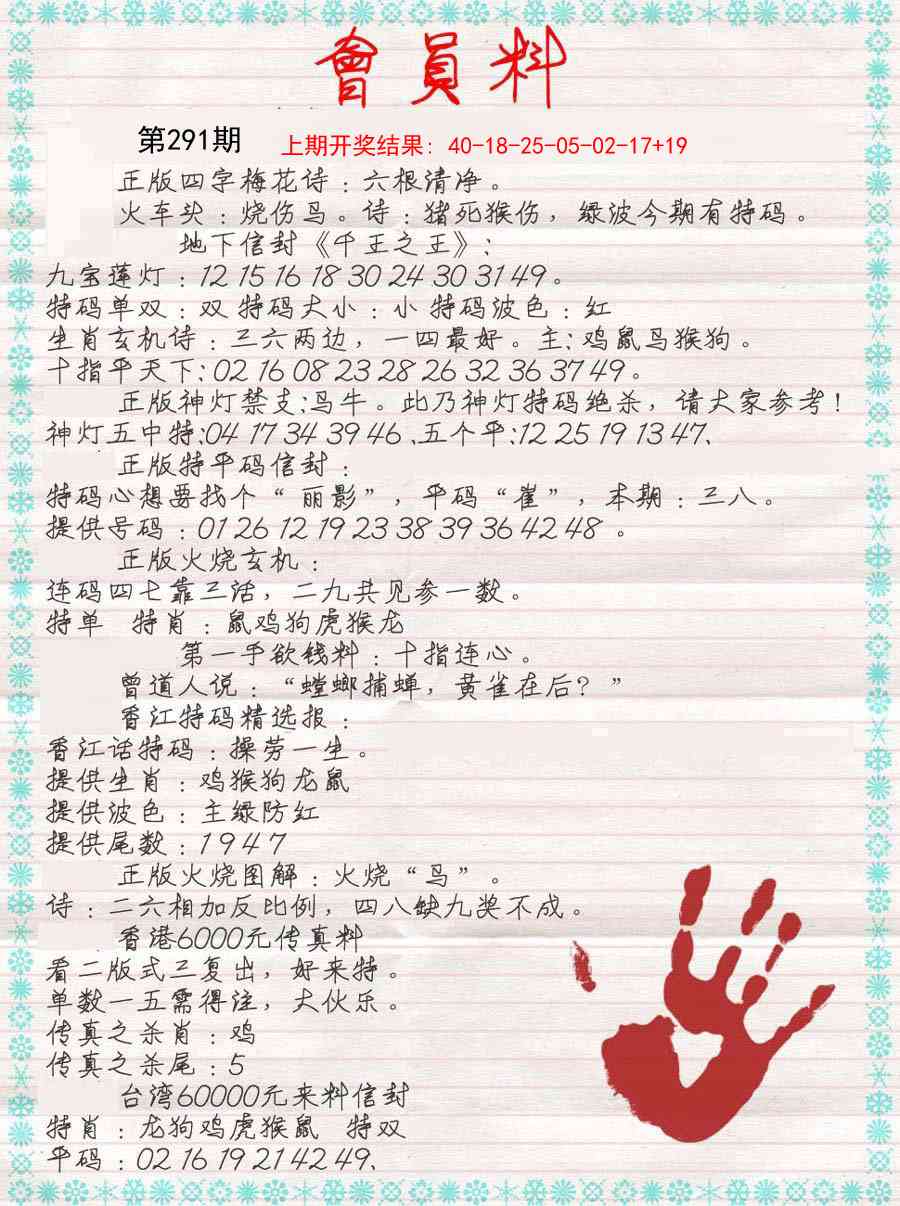 會員料
第291期 上期开奖结果: 40-18-25-05-02-17+19
正版四字梅花诗：六根清净。
火车头：烧伤鸟。诗：猪死猴伤，绿波今期有特码。
地下信封《千王之王》：
九宝莲灯：12 15 16 18 30 24 30 31 49。
特码单双：双 特码大小：小 特码波色：红
生肖玄机诗：三六两边，一四最好。主：鸡鼠鸟猴狗。
十指平天下：02 16 08 23 28 26 32 36 37 49。
正版神灯禁支:鸟牛。此乃神灯特码绝杀，请大家参考！
神灯五中特:04 17 34 39 46、五个平:12 25 19 13 47、
正版特平码信封：
特码心想要找个“丽影”，平码“崔”，本期：三八。
提供号码：01 26 12 19 23 38 39 36 42 48 。
正版火烧玄机：
连码四七靠三活，二九共见参一数。
特单 特肖：鼠鸡狗虎猴龙
第一手欲钱料：十指连心。
曾道人说：“螳螂捕蝉，黄雀在后？”
香江特码精选报：
香江话特码：操劳一生。
提供生肖：鸡猴狗龙鼠
提供波色：主绿防红
提供尾数：1 9 4 7
正版火烧图解：火烧“鸟”。
诗：二六相加反比例，四八缺九奖不成。
香港6000元传真料
看二版式三复出，好来特。
单数一五需得注，大伙乐。
传真之杀肖：鸡
传真之杀尾：5
台湾60000元来料信封
特肖：龙狗鸡虎猴鼠 特双
平码：02 16 19 21 42 49、